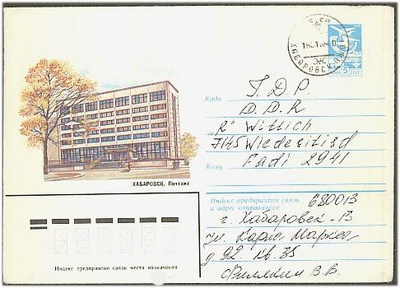 ХАБАРОВСК
Куда
Г Д Р
D. D. R
„R" Wittich
7145 Wiederitzsd
Кому
Fadi 2941
ХАБАРОВСК. Почтамт
Индекс предприятия связи
и адрес отправителя
680013
г. Хабаровск-13
ул. Карла Маркса
д 92. кв. 35
В. В.
Индекс предприятия связи места назначения